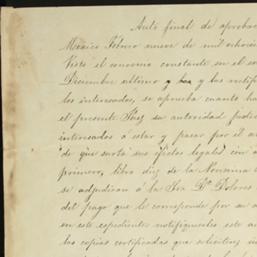 Auto final de aprobac
Mexico Febrero nueve de mil ochocien
Visto el convenio constante en el es
Diciembre ultimo y las ratifi
los interesados, se aprueba cuanto ha
el presente Juez su autoridad judic
interesados á estar y pasar por él a
de que surta sus efectos legales con a
primero, libro diez de la Novisima
se adjudican á la Sra. Dª Dolores
del pago que le corresponde por su
en este espediente notifiquese este au
las copias certificadas que soliciten